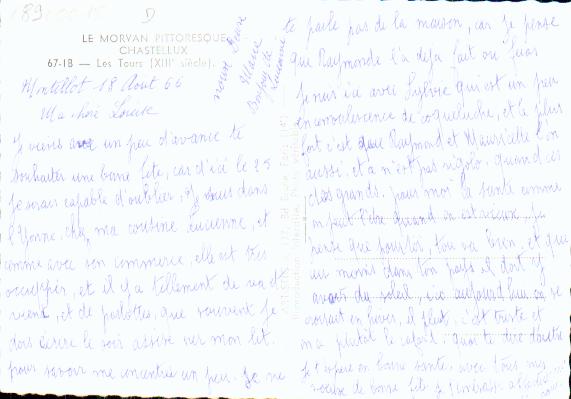 LE MORVAN PITTORESQUE
CHASTELLUX
67-18 — Les Tours (XIIIe siècle).
Montillot 18 Aout 66
Ma chère Louise
Je viens avec un peu d'avance te
souhaiter une bonne fête, car d'ici le 25
Je serais capable d'oublier, Je suis dans
l'Yonne, chez ma cousine Lucienne, et
comme avec son commerce, elle est très
occupée, et il y a tellement de va et
vient, et de parlottes, que souvent je
dois écrire le soir assise sur mon lit.
pour savoir me concentrer un peu. Je ne
te parle pas de la maison, car je pense
que Raymonde l'a deja fait ou fera
Je suis ici avec Sylvie qui est un peu
en convalescence de coqueluche, et le plus
fort c'est que Raymond et Mauricette l'on
aussi. et ça n'est pas rigolo. quand ces
des grands. pour moi la santé comme
on peut l'être quand on est vieux. Je
pense que pour toi, tout va bien, et que
au moins dans ton pays il doit y
avoir du soleil, ici aujourd'hui on se
croirait en hiver, il pleut, c'est triste et
on a plutôt le cafard. quoi te dire d'autre
Je t'espère en bonne santé, avec tous mes
voeux de bonne fête je t'embrasse